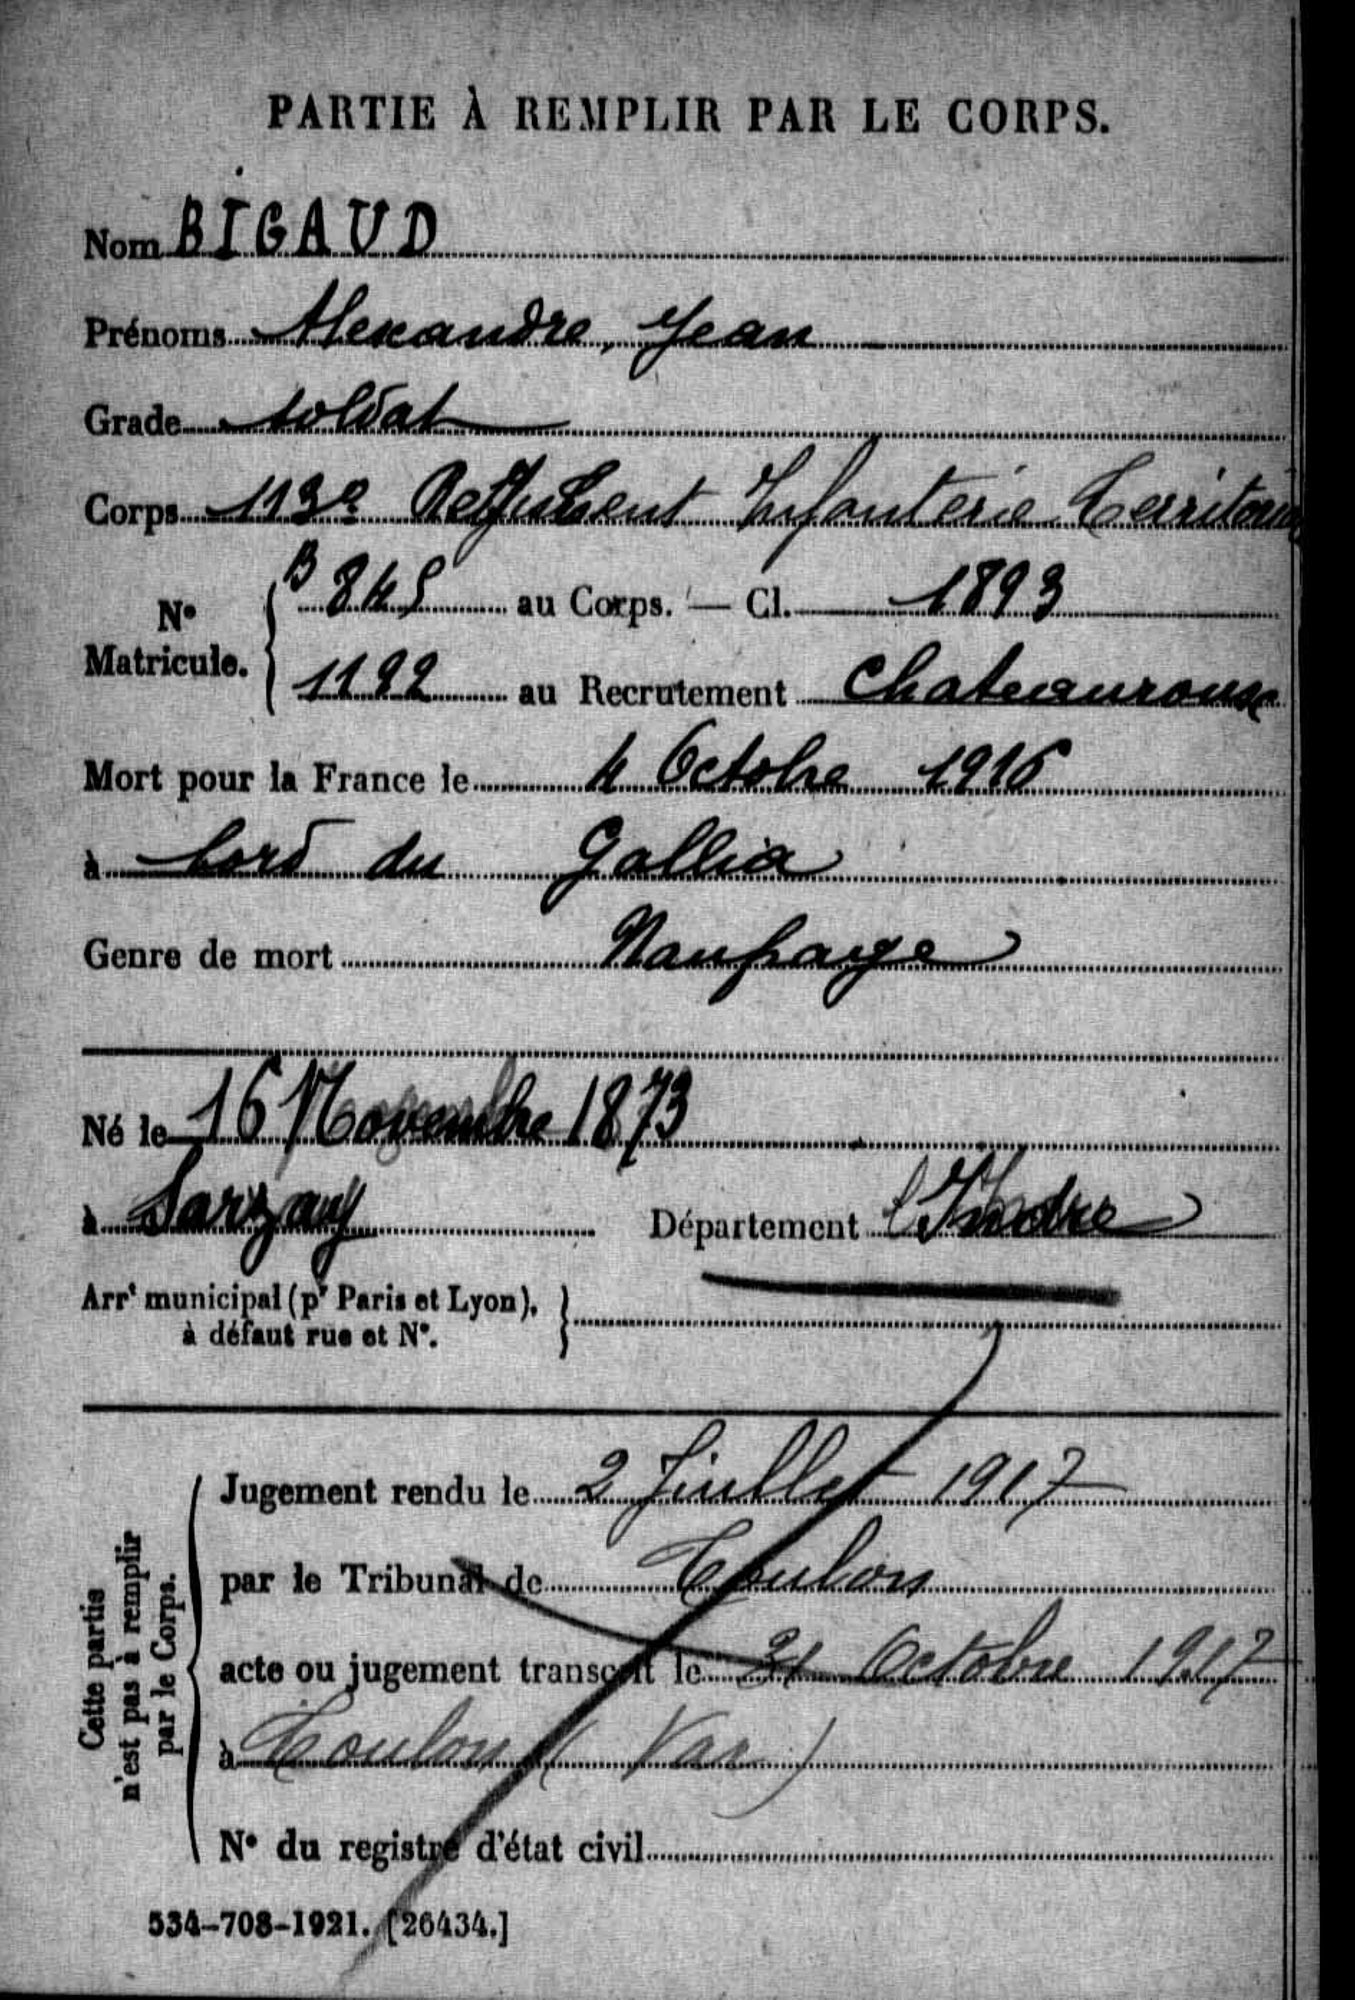 PARTIE À REMPLIR PAR LE CORPS.
Nom BIGAUD
Prénoms Alexandre, Jean
Grade soldat
Corps 113e Régiment Infanterie Territoriale
N° Matricule. { B 845 au Corps. — Cl. 1893
1192 au Recrutement Chateauroux
Mort pour la France le 4 Octobre 1916
à bord du Gallia
Genre de mort Naufrage
Né le 16 Novembre 1873
à Sarzay Département l'Indre
Arrt municipal (pr Paris et Lyon), }
à défaut rue et N°.
Cette partie
n'est pas à remplir
par le Corps.
Jugement rendu le 2 Juillet 1917
par le Tribunal de Toulon
acte ou jugement transcrit le 31 Octobre 1917
à Toulon (Var)
N° du registre d'état civil
534-708-1921. [26434.]